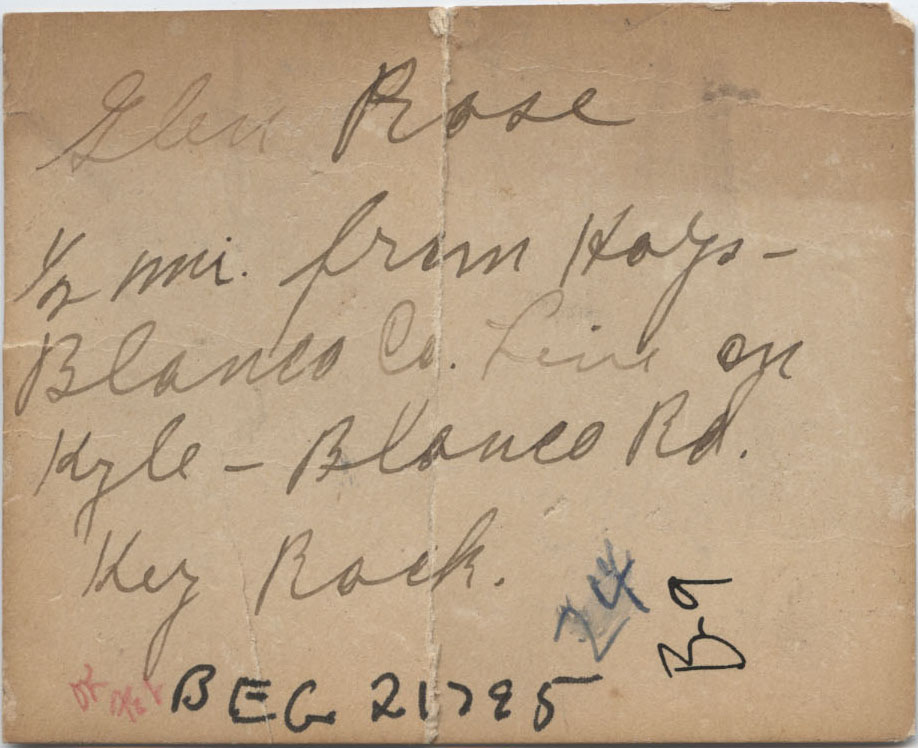 Glen Rose
1/2 mi. from Hays-
Blanco Co. Line on
Kyle - Blanco Rd.
Key Rock.
24
B-9
BEG 21795